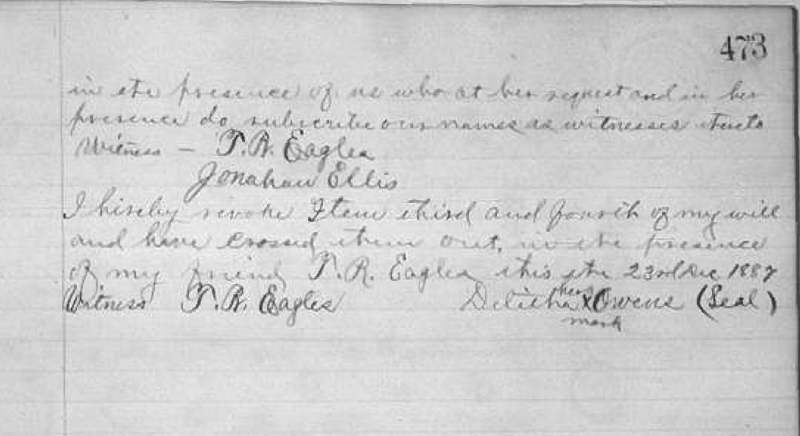 473
in the presence of us who at her request and in her
presence do subscribe our names as witnesses thereto
Witness — T. R. Eagles
Jonahan Ellis
I hereby revoke Item third and fourth of my will
and have crossed them out, in the presence
of my friend T. R. Eagles this the 23rd Dec 1887
Witness T. R. Eagles Delitha her x mark Owens (Seal)